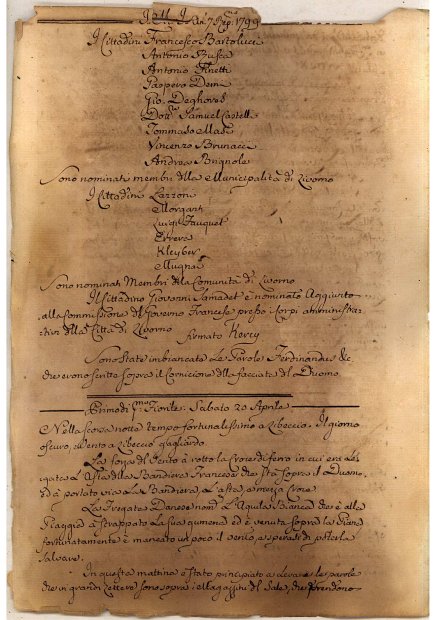 1799
I Cittadini Francesco Bartolucci
Antonio Busca
Antonio Finetti
Prospero Demi
Gio. Deghores
Dott. Samuel Castelli
Tommaso Masi
Vincenzo Brunacci
Andrea Brignole
Sono nominati membri della Municipalità di Livorno
I Cittadini Lazzoni
Morganti
Luigi Fauquet
Errera
Kleyber
Mugnai
Sono nominati Membri della Comunità di Livorno
Il Cittadino Giovanni Lamadet è nominato Aggiunto
alla Commissione del Governo Francese presso i Corpi amministra-
tivi della Città di Livorno
firmato Hercy
Sono State imbiancate Le Parole Ferdinandus &c.
che erono scritte sopra il Cornicione della facciata del Duomo.
Primodì Fiorile: Sabato 20 Aprile
Nella scorsa notte tempo fortunalissimo a Libeccio. Il giorno
oscuro, vento a Libeccio gagliardo
La forza del Vento à rotto la Croce di ferro in cui era le-
gata L'Asta della Bandiera Francese che sta sopra il Duomo,
ed à portato via La Bandiera, L'asta, e mezza Croce
La Fregata Danese nom. L'Aquila Bianca che è alla
Spiaggia à strappato La sua gumena ed è venuta sopra La
fortunatamente è mancato un poco il vento, e sperasi di poterla
salvare.
In questa mattina è stato principiato a levare le parole
che in grandi Lettere sono sopra i Magazzini del Sale, che prendono